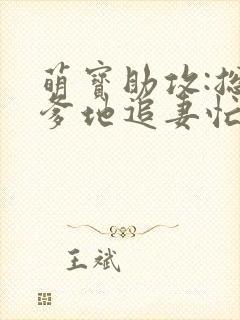 萌宝助攻:总
爹地追妻忙
王斌